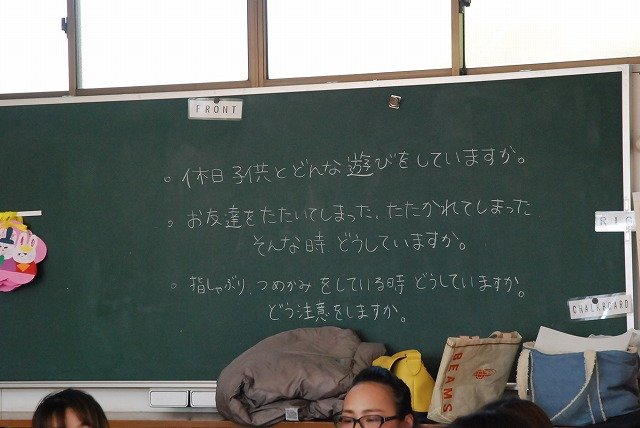 FRONT
。休日 子供とどんな遊びをしていますか。
。お友達をたたいてしまった、たたかれてしまった
そんな時 どうしていますか。
。指しゃぶり、つめかみ をしている時 どうしていますか。
どう注意をしますか。
RIG
CHALKBOARD
BEAMS